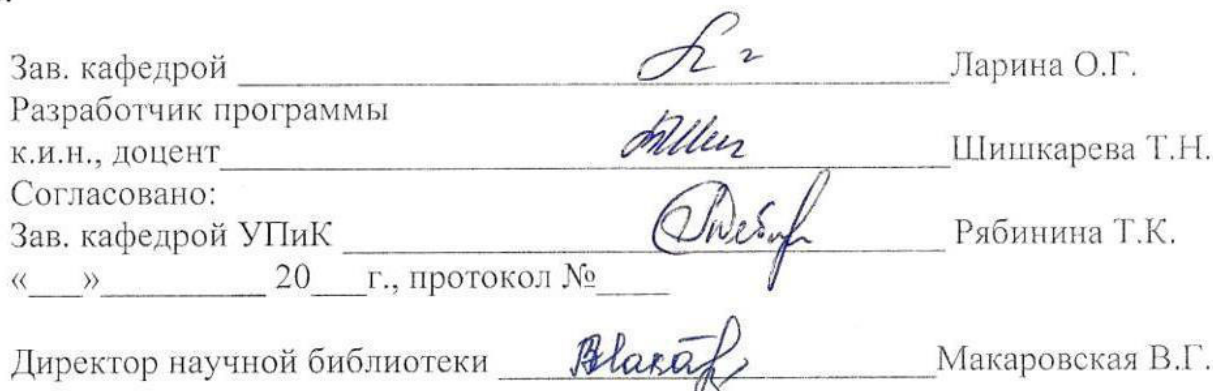 Зав. кафедрой ____________ Ларина О.Г.
Разработчик программы
к.и.н., доцент ____________ Шишкарева Т.Н.
Согласовано:
Зав. кафедрой УПиК ____________ Рябинина Т.К.
«___»__________ 20___г., протокол №_____
Директор научной библиотеки ____________ Макаровская В.Г.